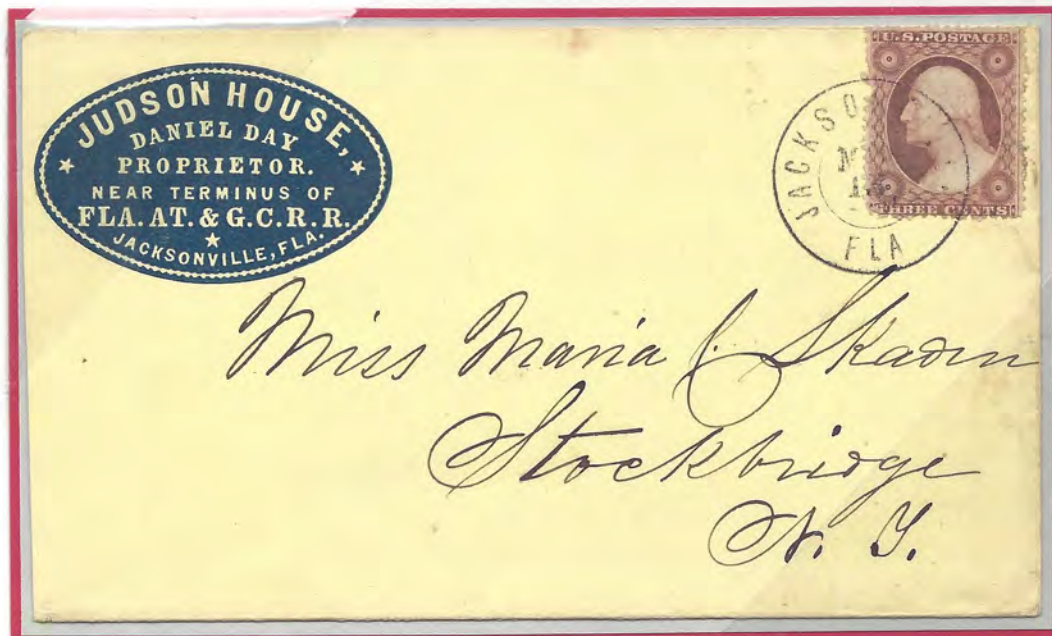 JUDSON HOUSE,
DANIEL DAY
PROPRIETOR.
NEAR TERMINUS OF
FLA. AT. & G.C.R.R.
JACKSONVILLE, FLA.
U.S. POSTAGE
THREE CENTS
JACKSO
FLA
Miss Maria
Stockbridge
N. Y.